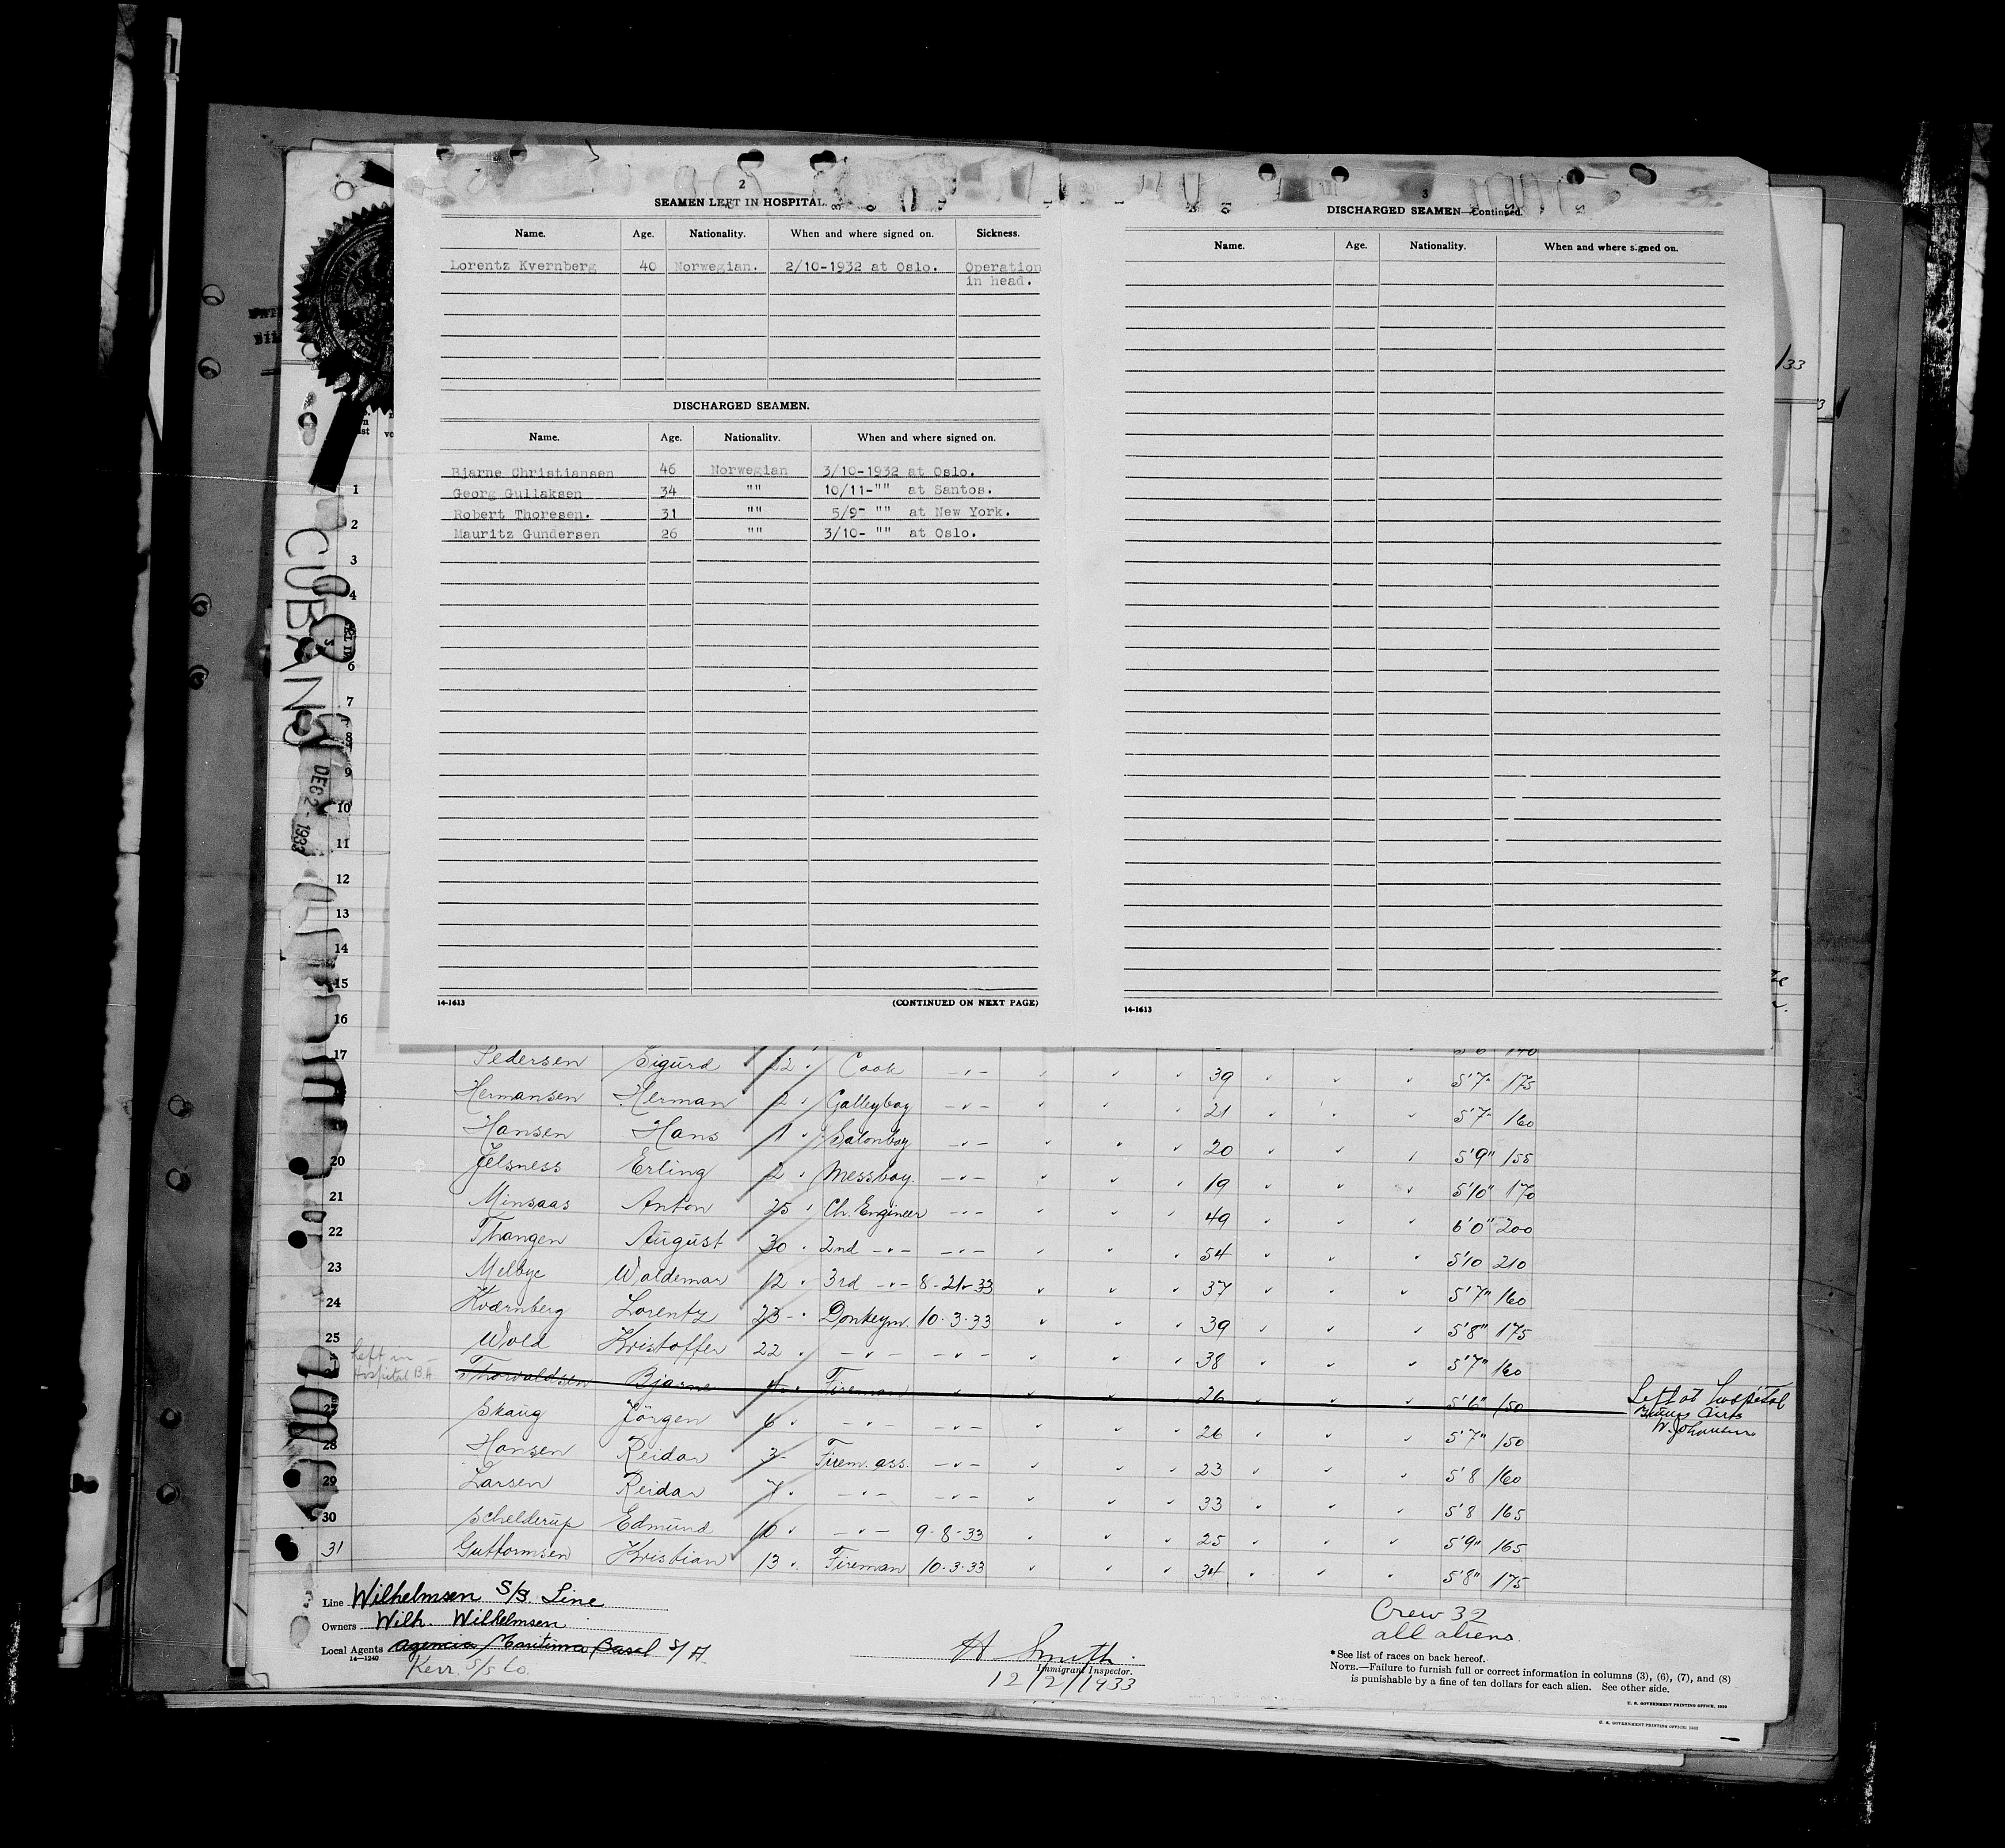 2
SEAMEN LEFT IN HOSPITAL.
Name. Age. Nationality. When and where signed on. Sickness.
Lorentz Kvernberg 40 Norwegian. 2/10-1932 at Oslo. Operation
in head.
DISCHARGED SEAMEN.
Name. Age. Nationality. When and where signed on.
Bjarne Christiansen 46 Norwegian 3/10-1932 at Oslo.
Georg Gullaksen 34 "" 10/11-"" at Santos.
Robert Thoresen. 31 "" 5/9- "" at New York.
Mauritz Gundersen 26 "" 3/10- "" at Oslo.
14-1613 (CONTINUED ON NEXT PAGE)
3
DISCHARGED SEAMEN—Continued.
Name. Age. Nationality. When and where signed on.
14-1613
/33
CUBAN
DEC 2 - 1933
1
2
3
4
6
7
8
9
10
11
12
13
14
15
16
5'6" 140
17 Pedersen Sigurd 22 Cook -"- 39 5'7" 175
Hermansen Herman 2 Galleyboy -"- 21 5'7" 160
19 Hansen Hans 1 Salonboy -"- 20 5'9" 155
20 Jelsness Erling 2 Messboy. -"- 19 5'10" 170
21 Minsaas Anton 25 Ch. Engineer -"- 49 6'0" 200
22 Thangen August 30 2nd -"- -"- 54 5'10 210
23 Melbye Waldemar 12 3rd -"- 8-21-33 37 5'7" 160
24 Kværnberg Lorentz 23 Donkeym. 10.3.33 39 5'8" 175
25 Wold Kristoffer 22 -"- -"- 38 5'7" 160
Left in Hospital B.A. Thorvaldsen Bjarne Fireman 26 5'6" 150 Left at hospital
W. Johansen
Skaug Jörgen 6 -"- -"- 26 5'7" 150
28 Hansen Reidar 3 Firem. ass. -"- 23 5'8 160
29 Larsen Reidar 7 -"- -"- 33 5'8 165
30 Schelderup Edmund 10 -"- 9-8-33 25 5'9" 165
31 Guttormsen Kristian 13 Fireman 10.3.33 34 5'8" 175
Line Wilhelmsen S/S. Line
Owners Wilh. Wilhelmsen
Local Agents Agencia Maritima Basel S/A
14—1240
Kerr S/S Co.
H Smith
Immigrant Inspector.
12/2/1933
Crew 32
all aliens.
*See list of races on back hereof.
NOTE.—Failure to furnish full or correct information in columns (3), (6), (7), and (8)
is punishable by a fine of ten dollars for each alien. See other side.
U. S. GOVERNMENT PRINTING OFFICE
U. S. GOVERNMENT PRINTING OFFICE